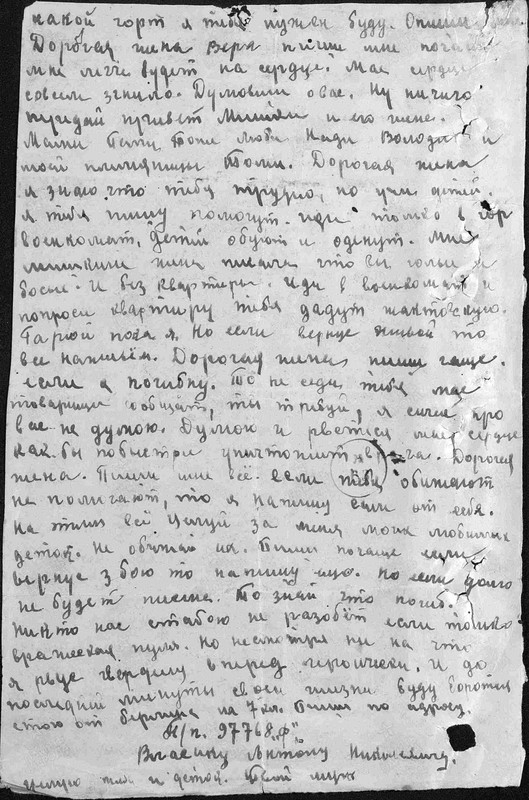 какой горт я тибе нужен буду. Опиши
Дорогая жена Вера пиши мне почаще
мне легче будет на сердце. Мае сердце
совсем згнило. Думовши о вас. Ну ничиго
передай привет Мишки и его жине.
Мами Папи Тони Люби Нади Володи и
моей племяницы Толи. Дорогая жина
я знаю что тибя трудно, но учи детей.
я тибя пишу помогут. иди только в гор
воинкомат, детей обуют и оденут. Мне
мишкина жина писала что вы голые и
босые. И без квартиры. Иди в воинкомат и
попроси квартиру тибя дадут
Гарюй пока я. Но если вернус живой то
все напишем. Дорогая жина пиши чаще.
если я погибну. То не седи тибя мае
товарищи сообщат, ты трибуй, я сичас про
вас не думою. Думою и рветься мае сердце
как бы побыстри уничтожить врага. Дорогая
жена. Пиши мне всё. если тибя обижают
не пологают, то я напишу сам от себя.
На этим всё Целуй за меня моих любимых
деток. Не обижай их. Пиши почаще если
вернус з бою то напишу ищо. Но если долго
не будет писма. То знай что погиб.
Никто нас стабою не разобёт если только
вражеская пуля. Но несмотря ни на что
я рвус твердиц вперед героически. И до
последней минуты своей жизни буду боротся
стою от берлина на 72км. Пиши по адресу.
П/п. 97768 „Ф"
Власину Антону Николаевичу.
целую тибя и деток. Твой муж